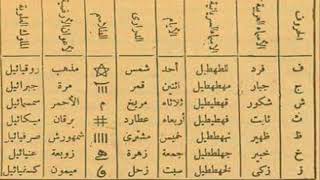 الحروف الأسماء العربية الأسماء السريانية الأيام الدرارى الطلاسم الأعوان الأرضية الملوك العلوية
ف فرد للطهطيل أحد شمس مذهب روقيائيل
ج جبار مهطهطيل اثنين قمر ||| مرة جبرائيل
ش شكور قهطيطيل ثلاثاء مريخ م الأحمر سمسمائيل
ث ثابت فهطبطيل أربعاء عطارد # برقان ميكائيل
ظ ظهير خميس مشترى |||| شمهورش صرفيائيل
خ خبير جمعة زهرة زوبعة عنيائيل
ز زكى سبت زحل ميمون كسفيائيل